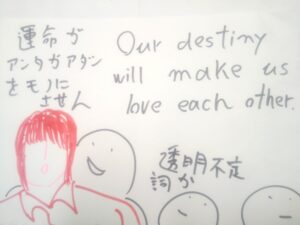 運命が
アンタガアダシ
をモノに
させん
Our destiny
will make us
love each other.
透明不定
詞か